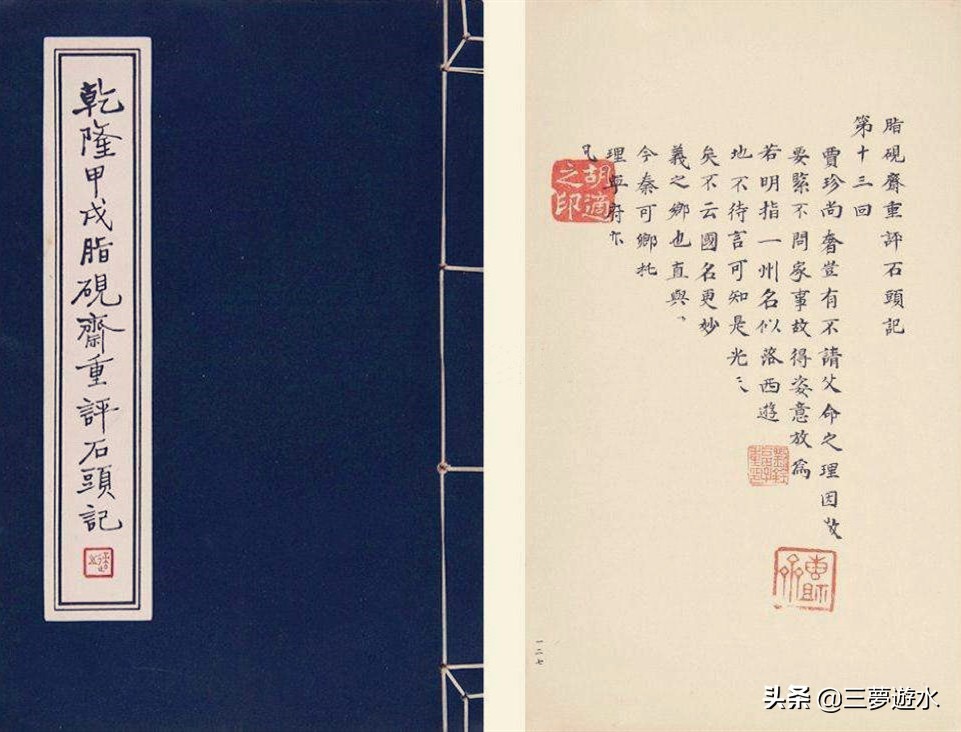 乾隆甲戌脂硯齋重評石頭記
脂硯齋重評石頭記
第十三回
賈珍尚奢豈有不請父命之理因敬
要緊不問家事故得姿意放為
若明指一州名似落西遊
地不待言可知是光
矣不云國名更妙
義之鄉也直與
今秦可卿托
理寧府亦
凡
胡適之印
一二七
头条 @三夢遊水